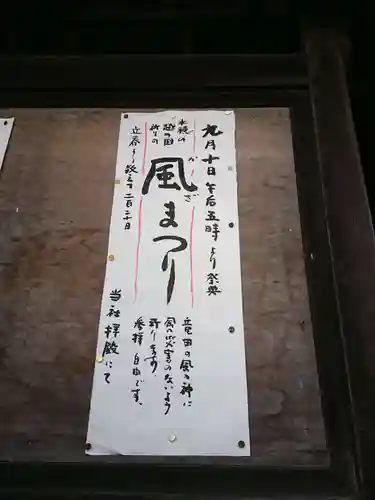 九月十日午后五時より祭典
木枝の
越の国
祈りの
風まつり
かざ
立春より数えて二百二十日
竜田の風の神に
風の災害のないよう
祈ります。
参拝自由です。
当社拝殿にて